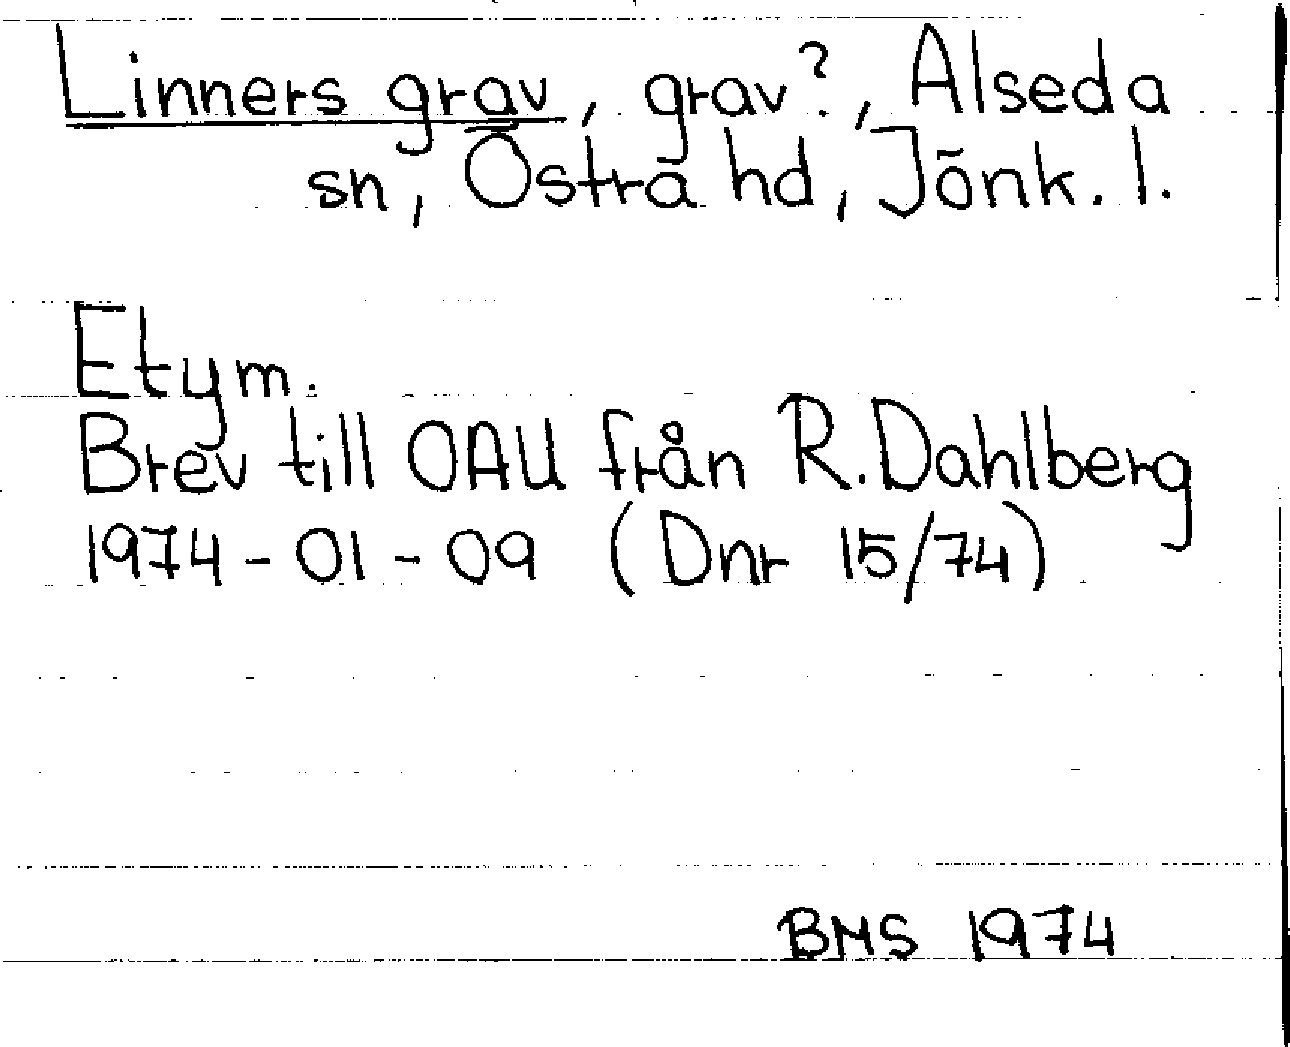 Linners grav, grav?, Alseda
sn, Östra hd, Jönk. l.
Etym.
Brev till OAU från R. Dahlberg
1974-01-09 (Dnr 15/74)
BMS 1974